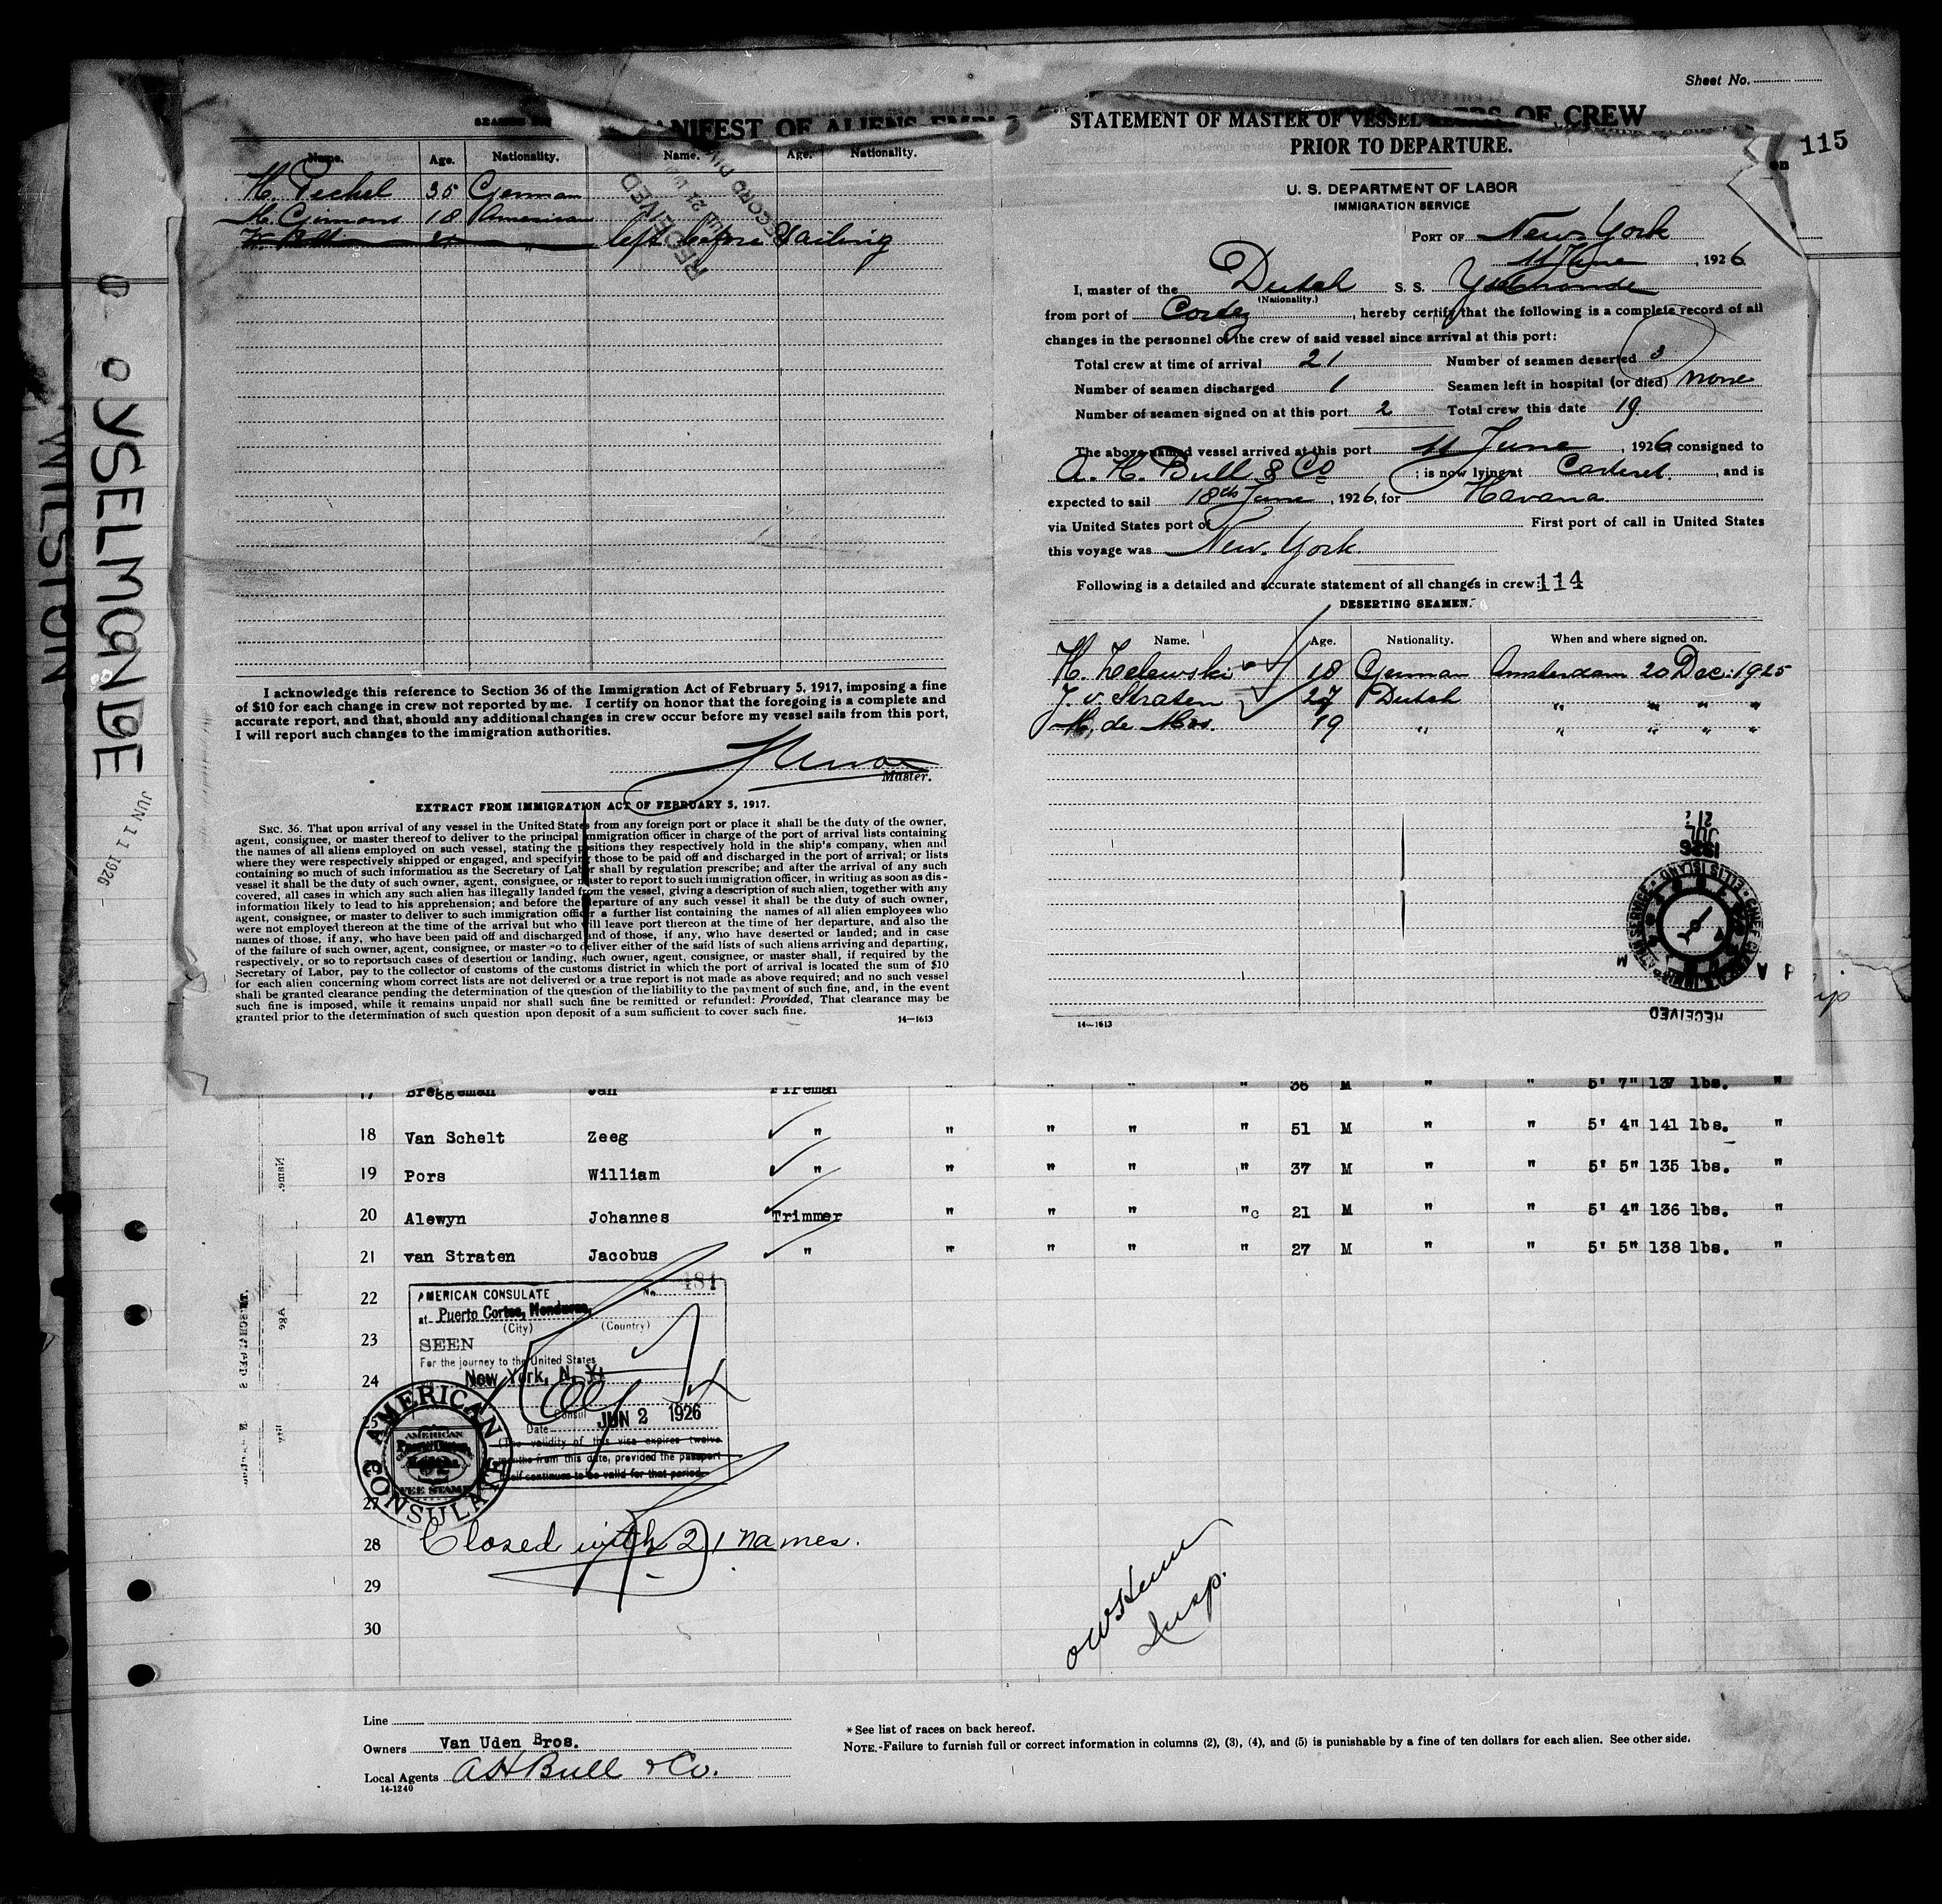 Sheet No.
MANIFEST OF ALIENS
Name. Age. Nationality. Name. Age. Nationality.
H. Pechel 35 German
18 American
left before sailing
RECEIVED
RECORD DIV
I acknowledge this reference to Section 36 of the Immigration Act of February 5, 1917, imposing a fine
of $10 for each change in crew not reported by me. I certify on honor that the foregoing is a complete and
accurate report, and that, should any additional changes in crew occur before my vessel sails from this port,
I will report such changes to the immigration authorities.
Master.
EXTRACT FROM IMMIGRATION ACT OF FEBRUARY 5, 1917.
SEC. 36. That upon arrival of any vessel in the United States from any foreign port or place it shall be the duty of the owner,
agent, consignee, or master thereof to deliver to the principal immigration officer in charge of the port of arrival lists containing
the names of all aliens employed on such vessel, stating the positions they respectively hold in the ship's company, when and
where they were respectively shipped or engaged, and specifying those to be paid off and discharged in the port of arrival; or lists
containing so much of such information as the Secretary of Labor shall by regulation prescribe; and after the arrival of any such
vessel it shall be the duty of such owner, agent, consignee, or master to report to such immigration officer, in writing as soon as dis-
covered, all cases in which any such alien has illegally landed from the vessel, giving a description of such alien, together with any
information likely to lead to his apprehension; and before the departure of any such vessel it shall be the duty of such owner,
agent, consignee, or master to deliver to such immigration officer a further list containing the names of all alien employees who
were not employed thereon at the time of the arrival but who will leave port thereon at the time of her departure, and also the
names of those, if any, who have been paid off and discharged and of those, if any, who have deserted or landed; and in case
of the failure of such owner, agent, consignee, or master so to deliver either of the said lists of such aliens arriving and departing,
respectively, or so to reportsuch cases of desertion or landing, such owner, agent, consignee, or master shall, if required by the
Secretary of Labor, pay to the collector of customs of the customs district in which the port of arrival is located the sum of $10
for each alien concerning whom correct lists are not delivered or a true report is not made as above required; and no such vessel
shall be granted clearance pending the determination of the question of the liability to the payment of such fine, and, in the event
such fine is imposed, while it remains unpaid nor shall such fine be remitted or refunded: Provided, That clearance may be
granted prior to the determination of such question upon deposit of a sum sufficient to cover such fine.
14—1613
STATEMENT OF MASTER OF VESSEL OF CREW
PRIOR TO DEPARTURE.
115
U. S. DEPARTMENT OF LABOR
IMMIGRATION SERVICE
PORT OF New York
11 June, 1926
I, master of the Dutch S. S. Yselmonde
(Nationality.)
from port of Cortez, hereby certify that the following is a complete record of all
changes in the personnel of the crew of said vessel since arrival at this port:
Total crew at time of arrival 21 Number of seamen deserted 3
Number of seamen discharged 1 Seamen left in hospital (or died) none
Number of seamen signed on at this port 2 Total crew this date 19
The above-named vessel arrived at this port 11 June, 1926, consigned to
A. H. Bull & Co; is now lying at Carteret, and is
expected to sail 18th June, 1926, for Havana
via United States port of First port of call in United States
this voyage was New York.
Following is a detailed and accurate statement of all changes in crew: 114
DESERTING SEAMEN.
Name. Age. Nationality. When and where signed on.
H. Zelewski 18 German Amsterdam 20 Dec: 1925
J. v. Straten 27 Dutch " " " "
M. de Mos. 19 " " " " "
14—1613
RECEIVED
YSELMONDE
WILSTON
JUN 11 1926
17 Breggeman Jan Fireman " " " 36 M " " 5' 7" 137 lbs. "
18 Van Schelt Zeeg " " " " " 51 M " " 5' 4" 141 lbs. "
19 Pors William " " " " " 37 M " " 5' 5" 135 lbs. "
20 Alewyn Johannes Trimmer " " " "c 21 M " " 5' 4" 136 lbs. "
21 van Straten Jacobus " " " " " 27 M " " 5' 5" 138 lbs. "
22
23
24
25
26
27
28
29
30
AMERICAN CONSULATE No. 481
at Puerto Cortes, Honduras,
(City) (Country)
SEEN
For the journey to the United States
New York, N. Y.
Consul
Date JUN 2 1926
(The validity of this visa expires twelve
months from this date, provided the passport
itself continues to be valid for that period.
AMERICAN CONSULATE
Closed with 21 names.
Insp.
Line
Owners Van Uden Bros.
Local Agents A H Bull & Co.
14-1240
* See list of races on back hereof.
NOTE.-Failure to furnish full or correct information in columns (2), (3), (4), and (5) is punishable by a fine of ten dollars for each alien. See other side.